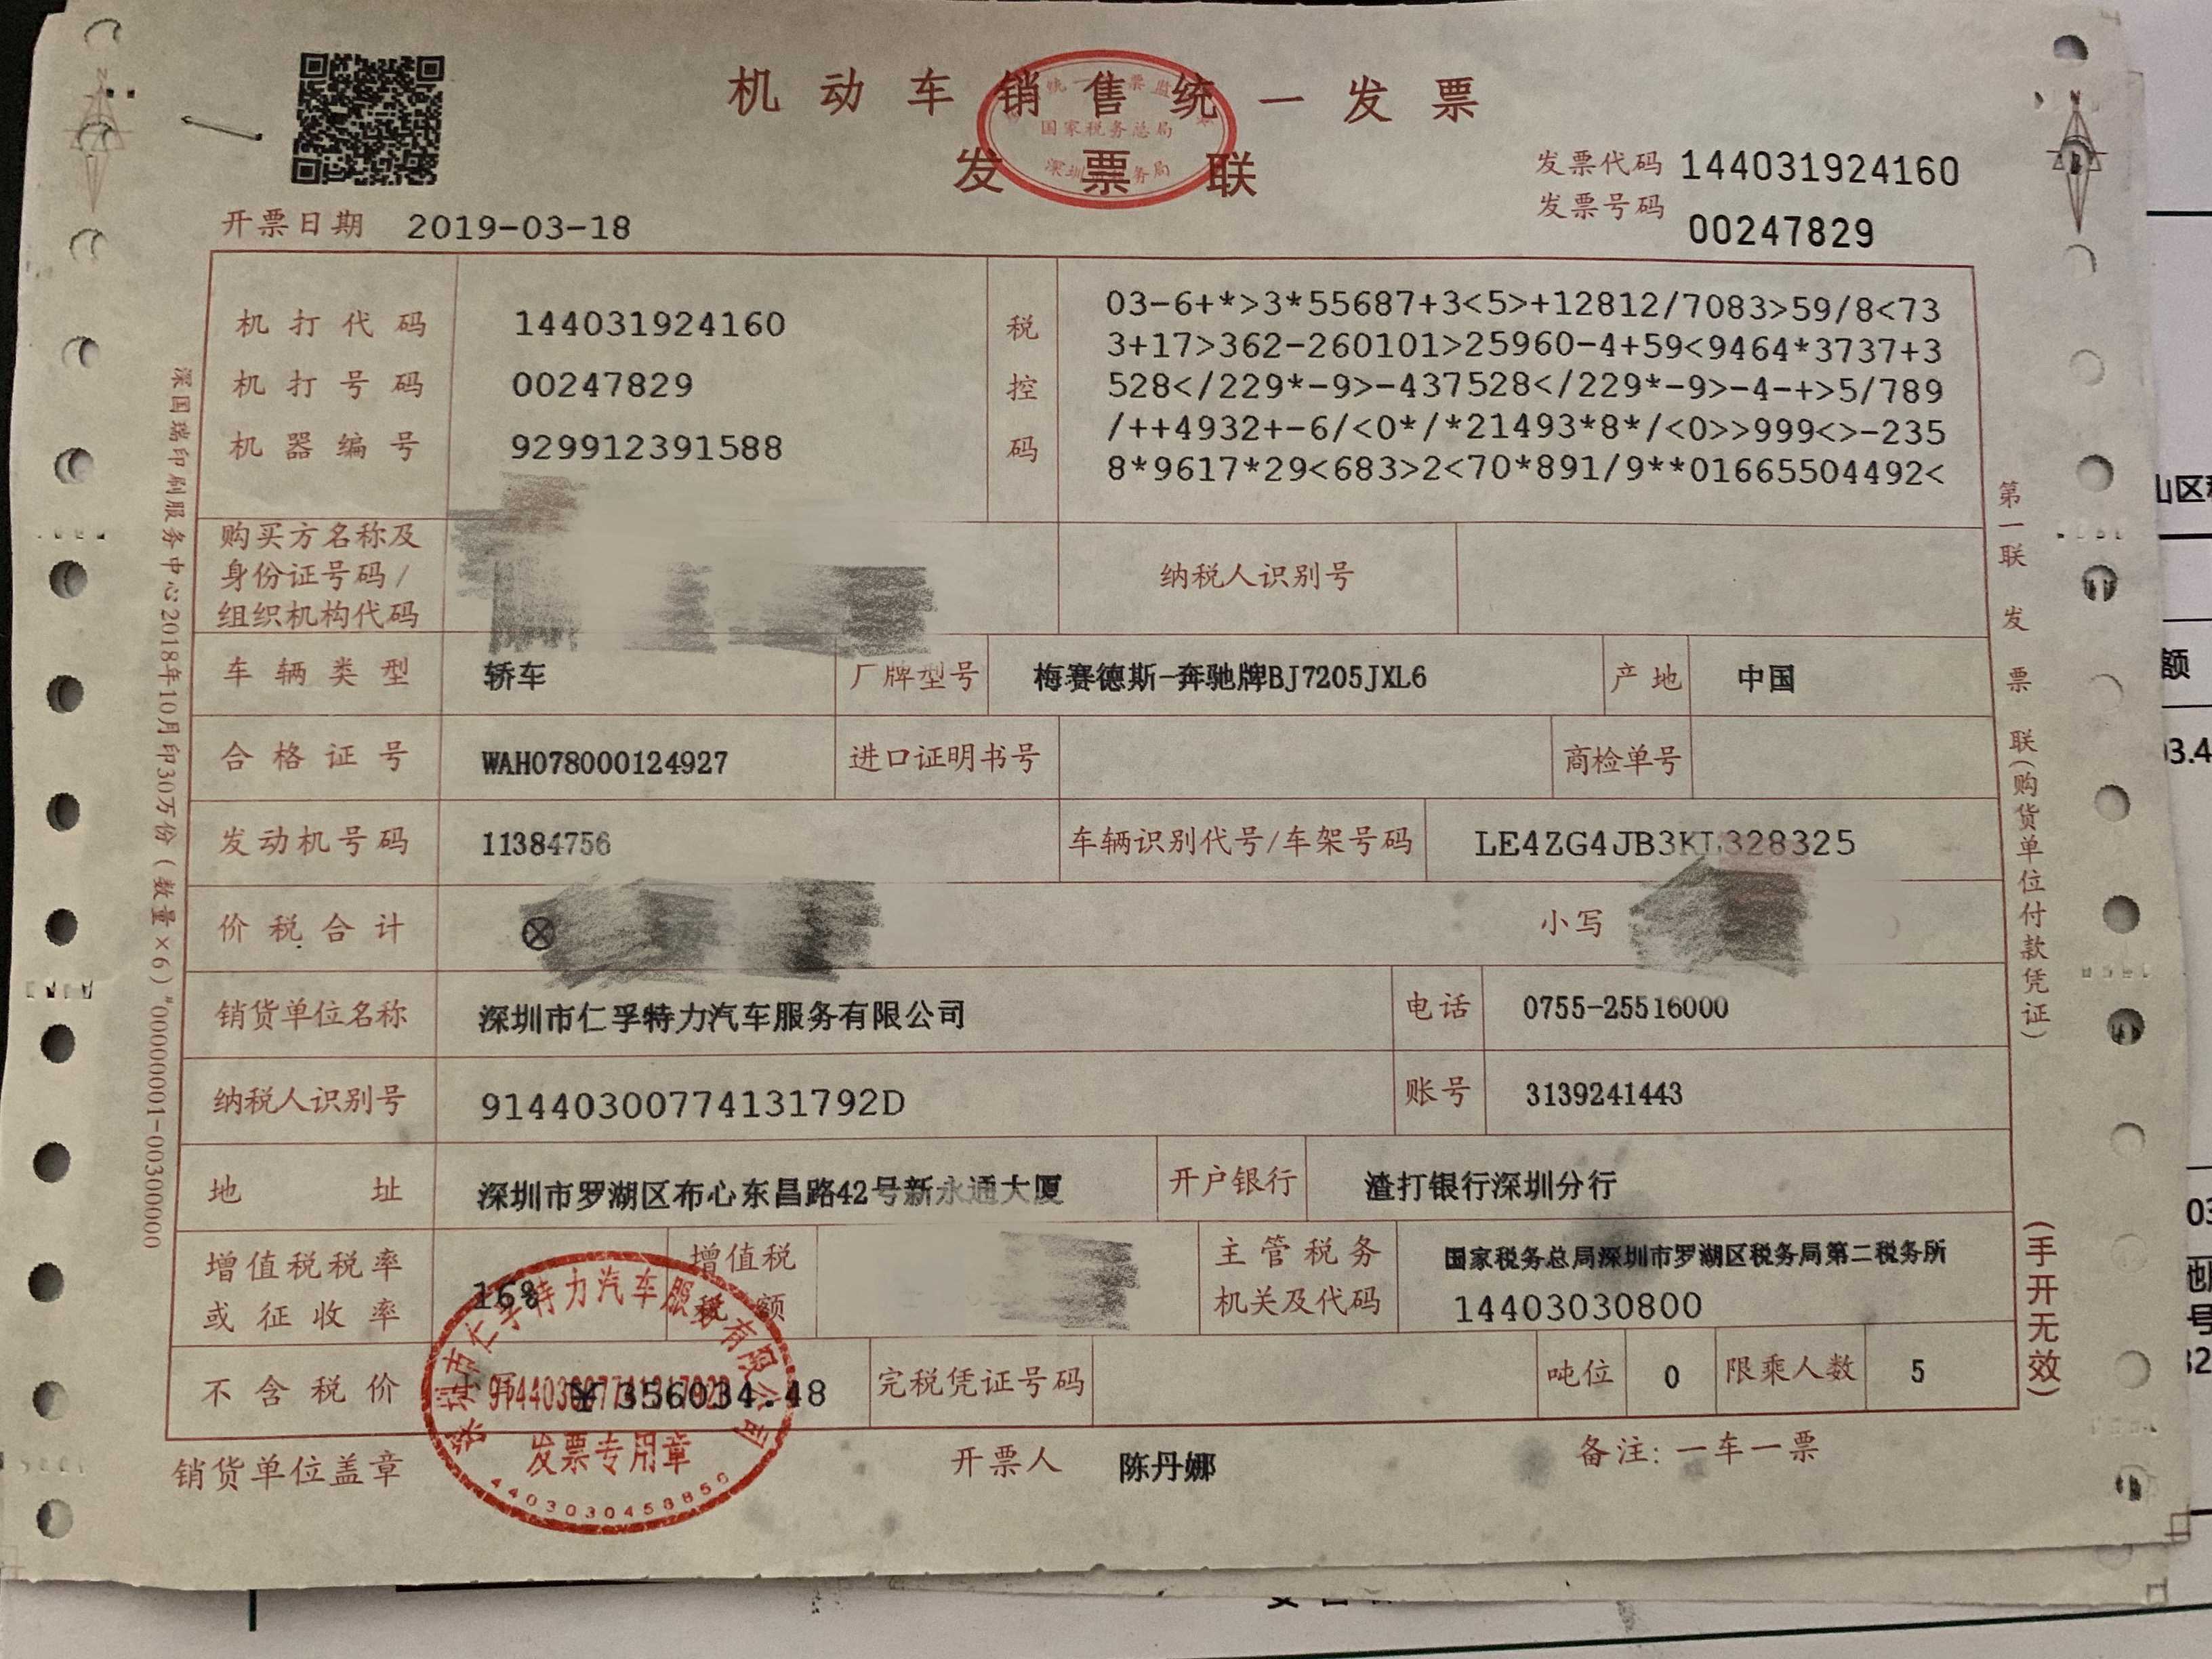 机动车销售统一发票
发票联
国家税务总局
发票代码 144031924160
发票号码 00247829
开票日期 2019-03-18
机打代码 144031924160
机打号码 00247829
机器编号 929912391588
税控码
03-6+*>3*55687+3<5>+12812/7083>59/8<73
3+17>362-260101>25960-4+59<9464*3737+3
528</229*-9>-437528</229*-9>-4-+>5/789
/++4932+-6/<0*/*21493*8*/<0>>999<>-235
8*9617*29<683>2<70*891/9**01665504492<
购买方名称及
身份证号码/
组织机构代码
纳税人识别号
车辆类型 轿车 厂牌型号 梅赛德斯-奔驰牌BJ7205JXL6 产地 中国
合格证号 WAH078000124927 进口证明书号 商检单号
发动机号码 11384756 车辆识别代号/车架号码 LE4ZG4JB3KL328325
价税合计 ⊗ 小写
销货单位名称 深圳市仁孚特力汽车服务有限公司 电话 0755-25516000
纳税人识别号 91440300774131792D 账号 3139241443
地址 深圳市罗湖区布心东昌路42号新永通大厦 开户银行 渣打银行深圳分行
增值税税率
或征收率
16%
增值税
税额
主管税务
机关及代码
国家税务总局深圳市罗湖区税务局第二税务所
14403030800
不含税价 ¥356034.48 完税凭证号码 吨位 0 限乘人数 5
销货单位盖章 开票人 陈丹娜 备注:一车一票
深圳市仁孚特力汽车服务有限公司
91440300774131792D
发票专用章
深国瑞印刷服务中心2018年10月印30万份(数量×6)"00000001-00300000
第一联 发票联(购货单位付款凭证)
(手开无效)